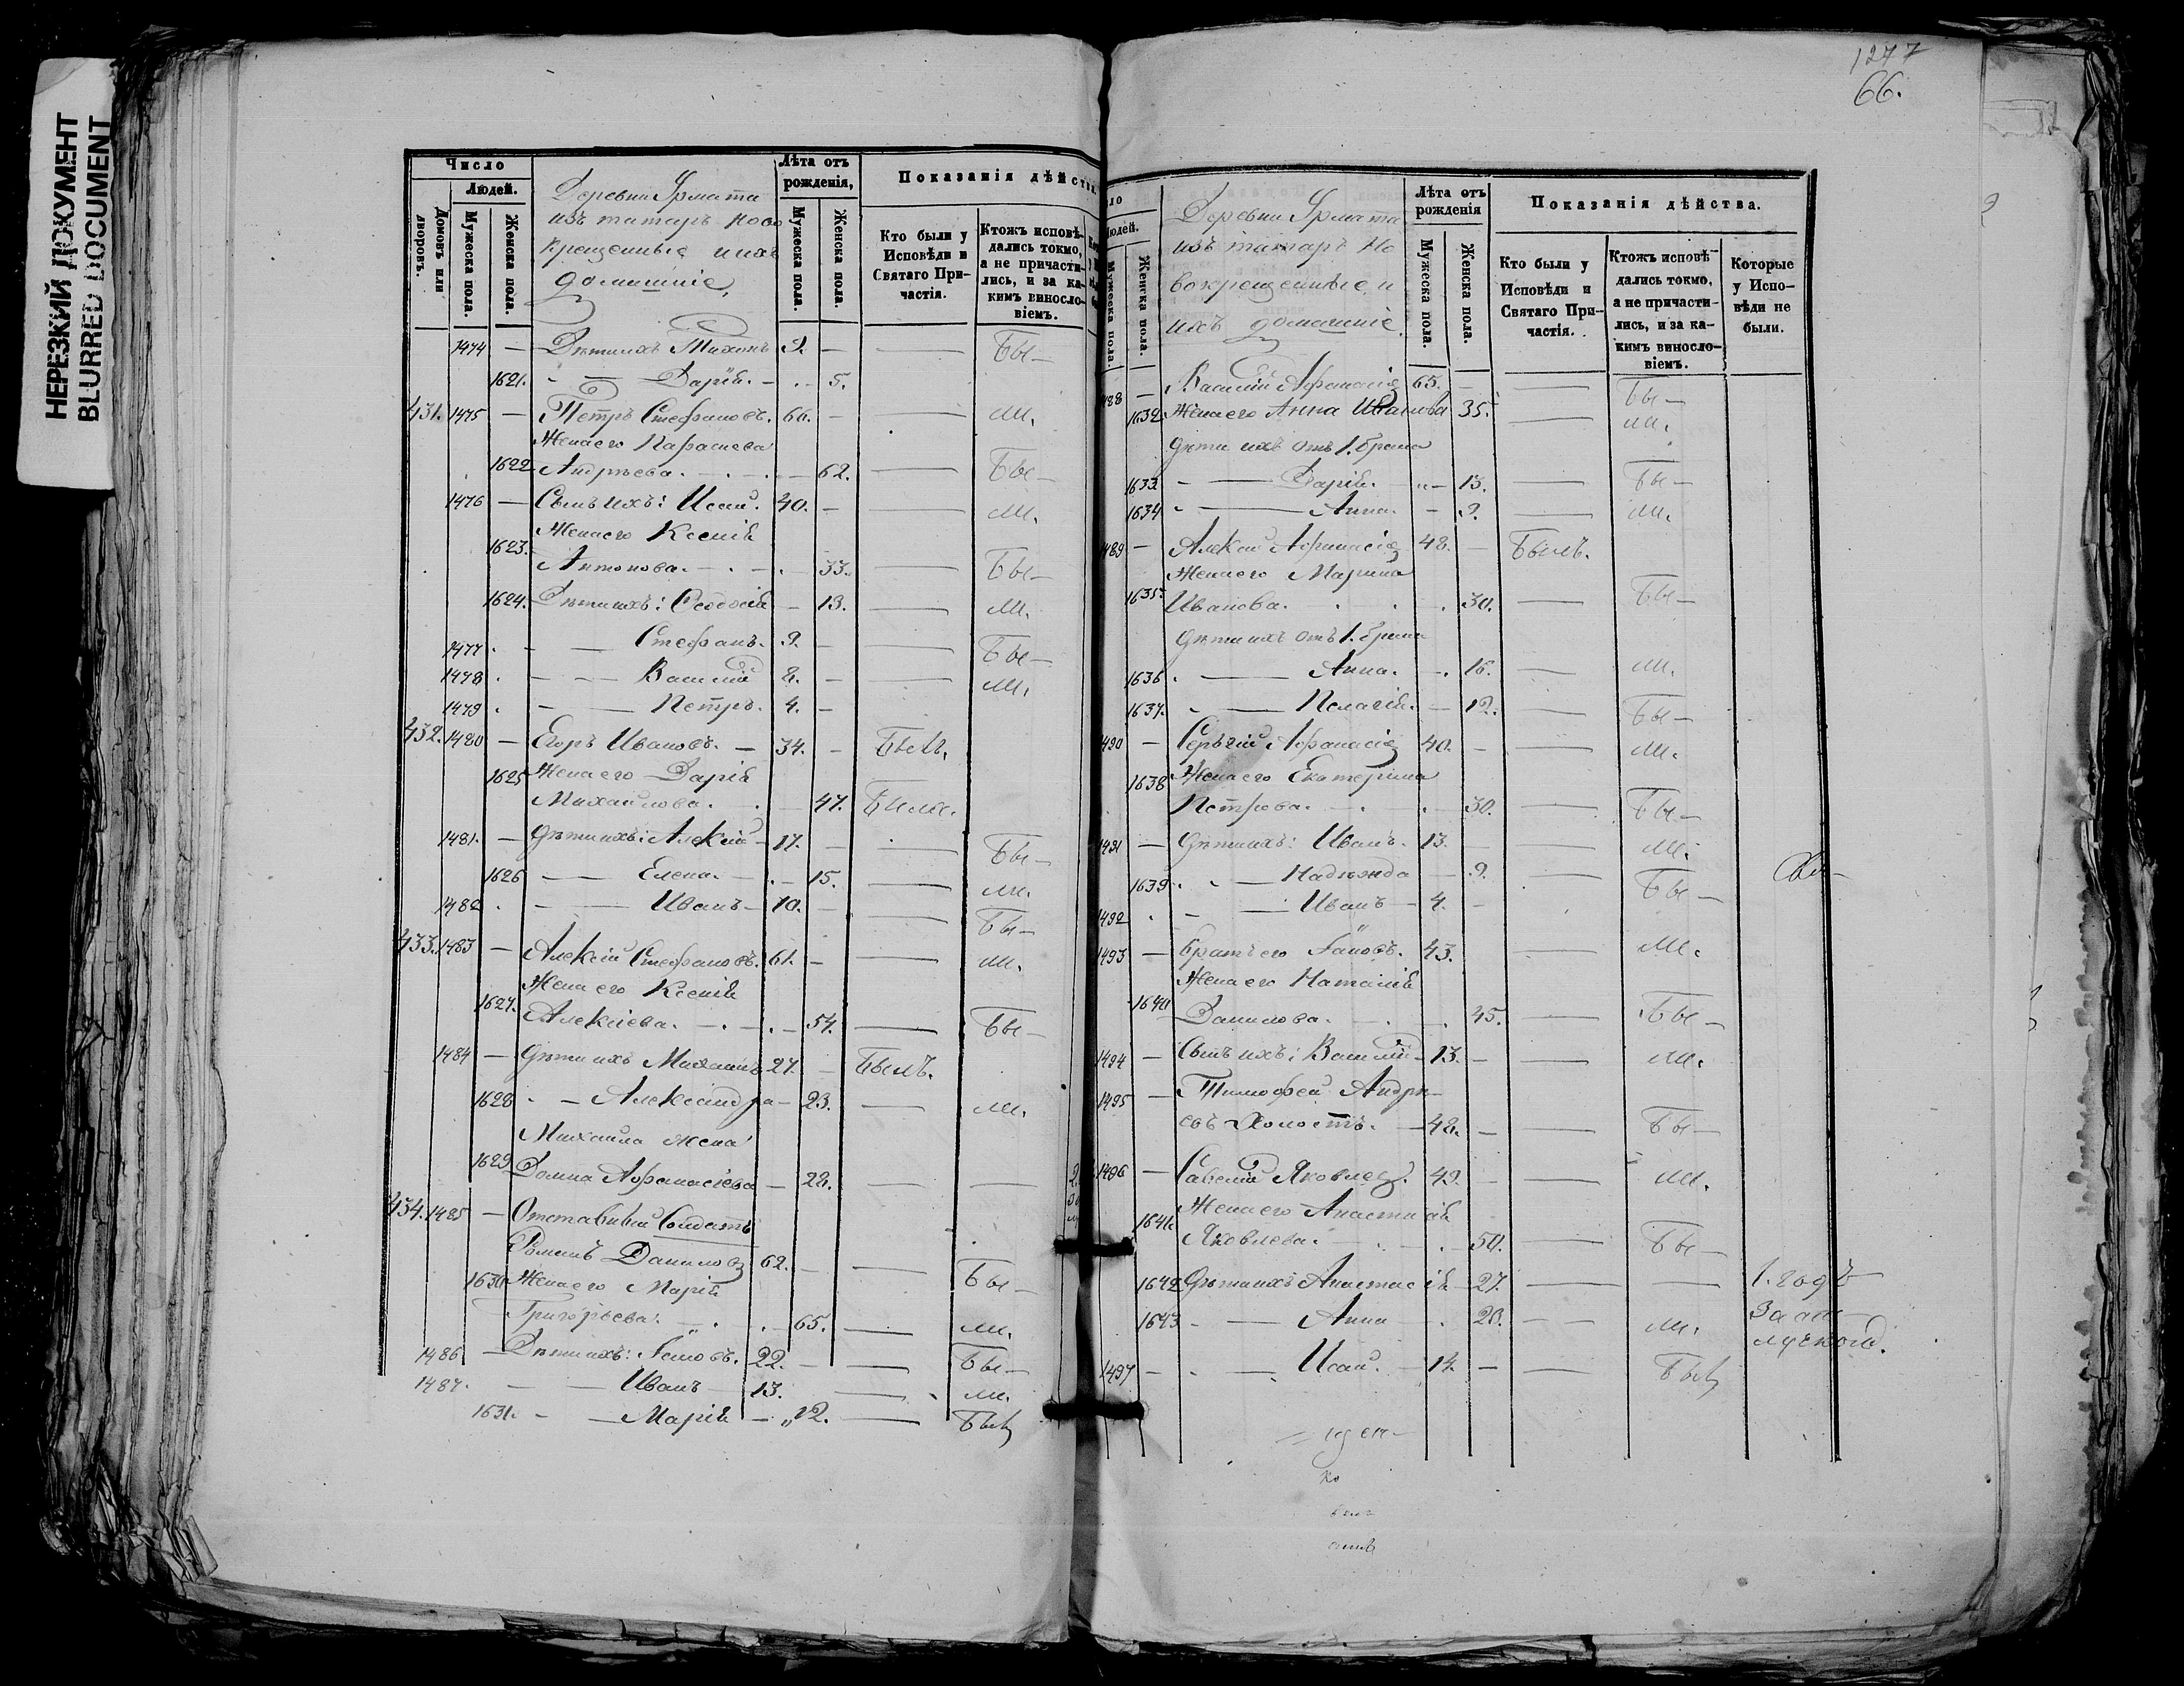 НЕРЕЗКИЙ ДОКУМЕНТ
BLURRED DOCUMENT
Число
Людей.
Домовъ или дворовъ.
Мужеска пола.
Женска пола.
Деревни Ярмата
изъ татаръ ново
крещенныя и ихъ
домашніе.
Лѣта отъ рожденія,
Мужеска пола.
Женска пола.
Показанія дѣйства.
Кто были у Исповѣди и Святаго При-частія.
Ктожъ исповѣ-дались токмо, а не причасти-лись, и за ка-кимъ винослo-віемъ.
1474 — Дѣти ихъ Тихонъ 9. — — Бы-
1621. - — Дарія. - - 5.
431. 1475 — Петръ Стефановъ. 66. — — ли.
Жена его Параскева
1622 Андреева. - - 62. — Бы-
1476 — Сынъ ихъ: Исай. 40. - — ли.
Жена его Ксенія
1623. Антонова. - - 33. — Бы-
1624. Дѣти ихъ: Феодосія - 13. — ли.
1477 - — Стефанъ. 9. - — Бы-
1478 - — Василій 8. - — ли.
1479 - — Петръ. 4. -
432. 1480 — Егоръ Ивановъ. — 34. - Былъ.
1625 Жена его Дарія
Михайлова. - 47. Была.
1481. — Дѣти ихъ: Алексій - 17. - — Бы-
1626 — Елена. - - 15. — ли.
1482 - — Иванъ - 10. - — Бы-
433. 1483 — Алексій Стефановъ. 61. - — ли.
Жена его Ксенія
1627. Алексіева. - - 54. — Бы-
1484 — Дѣти ихъ Михаилъ 27. - Былъ.
1628 - - Александра - 23. — ли.
Михаила жена
1629 Домна Афанасіева — 28. — —
434. 1485 — Отставный Солдатъ
Романъ Данилов 62. - — Бы-
1630 Жена его Марія
Григорьева. - - 65. — ли.
1486 — Дѣти ихъ: Іаковъ. 22. - — Бы-
1487. - — Иванъ 13. — ли.
1631. - — Марія - „ 12. — Был
1277
66.
Людей.
Мужеска пола.
Женска пола.
Деревни Ярмата
изъ татаръ но
вокрещенные и
ихъ домашніе.
Лѣта отъ рожденія
Мужеска пола.
Женска пола.
Показанія дѣйства.
Кто были у Исповѣди и Святаго При-частія.
Ктожъ исповѣ-дались токмо, а не причасти-лись, и за ка-кимъ винослo-віемъ.
Которые у Испо-вѣди не были.
1488 — Василій Афанасіев 65. - — Бы-
1632 Жена его Анна Иванова 35. — ли.
дѣти ихъ отъ 1. брака
1633 - — Дарія. - 13. — Бы-
1634 - — Анна. - 9. — ли.
1489 — Алексій Афанасіев 48. - Былъ.
Жена его Марина
1635 Иванова. - - 30. — Бы-
дѣти ихъ отъ 1. брака
1636 - — Анна. - 16. — ли.
1637. - — Пелагія. - 12. — Бы-
1490 — Сергій Афанасіев 40. - — ли.
1638 Жена его Екатерина
Петрова. - - 30. — Бы-
1491 — Дѣти ихъ: Иванъ. 13. - — ли.
1639 - — Надежда - 9. — Бы-
1492 - — Иванъ - 4. -
1493 — Братъ его Іаковъ. 43. — ли.
Жена его Наталія
1640 Данилова. - - 45. — Бы-
1494 — Сынъ ихъ: Василій - 13. - — ли.
1495 — Тимофей Андре-
евъ Холостъ. - 48. - — Бы-
1496 — Савелій Яковлев. 49. - — ли.
Жена его Анастасія
1641 Яковлева. - - 50. — Бы-
1642 Дѣти ихъ Анастасія - 27. — — 1. годъ
1643 - — Анна - 20. - - ли. За от
лучкой.
1497 - — Исай. - 14. - — Был